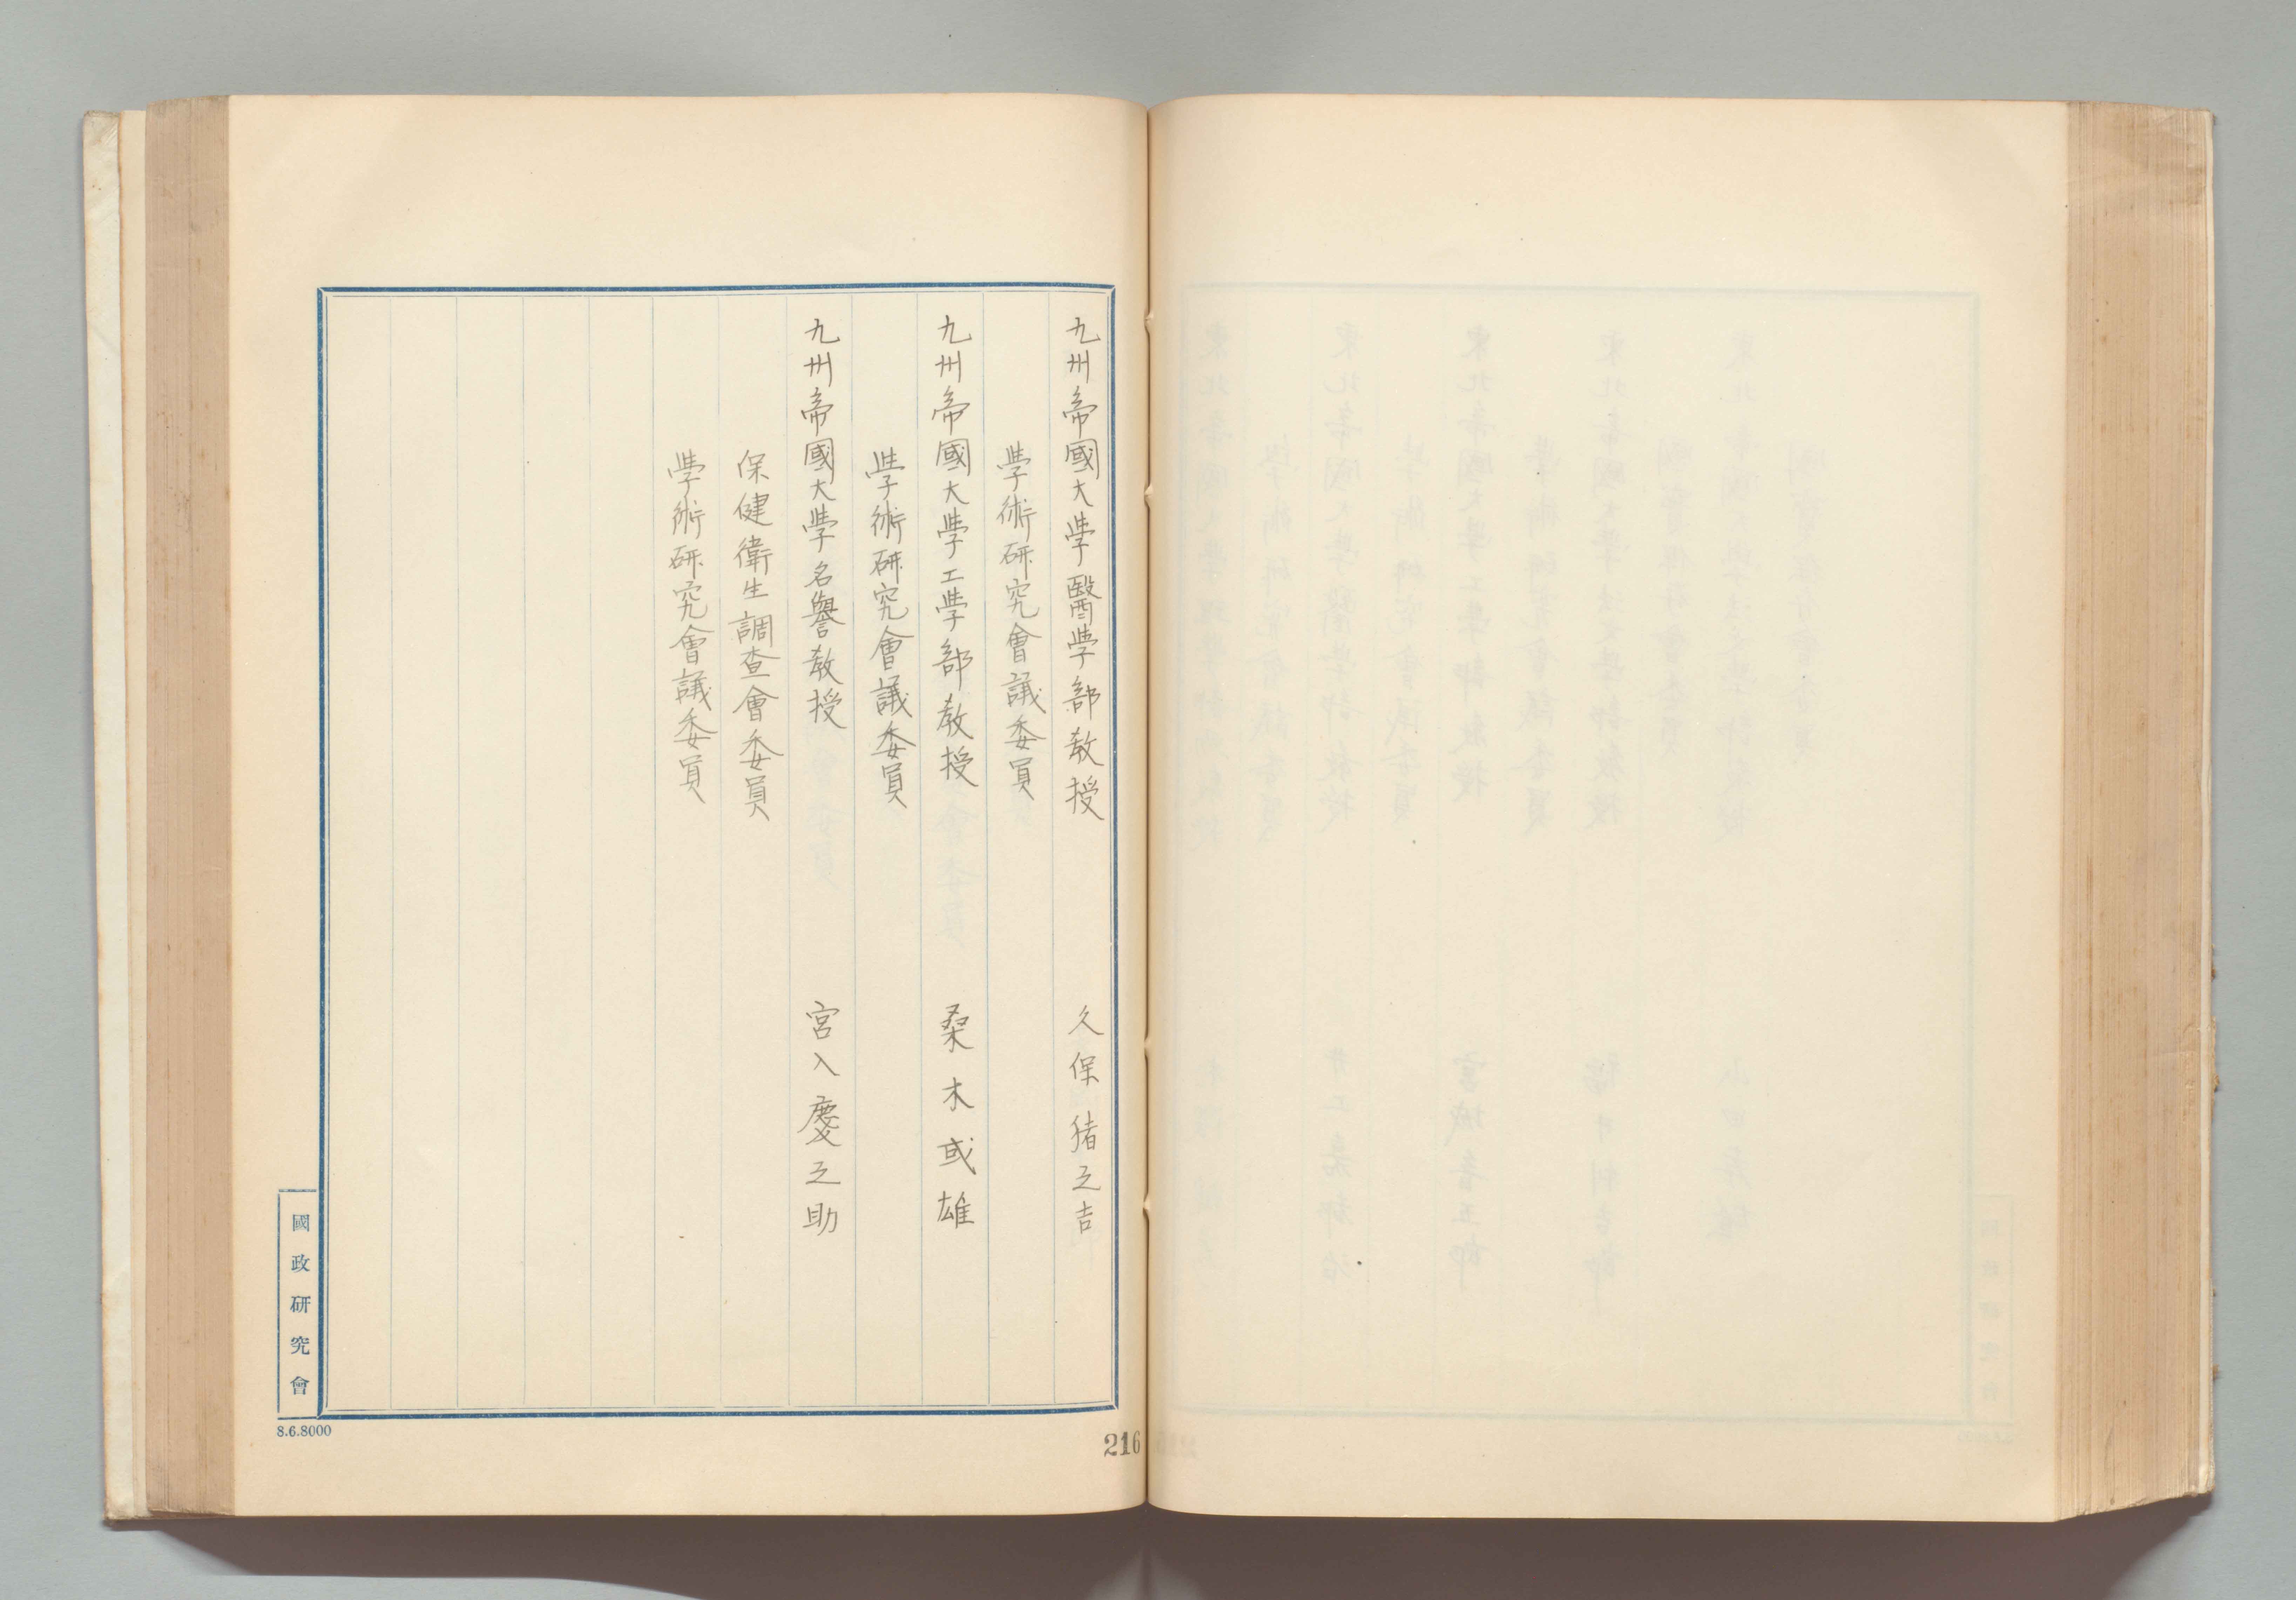 九州帝國大學醫學部敎授 久保猪之吉
學術研究會議委員
九州帝國大學工學部敎授 桑木或雄
學術研究會議委員
九州帝國大學名譽敎授 宮入慶之助
保健衛生調査會委員
學術研究會議委員
國政研究會
8.6.8000
216